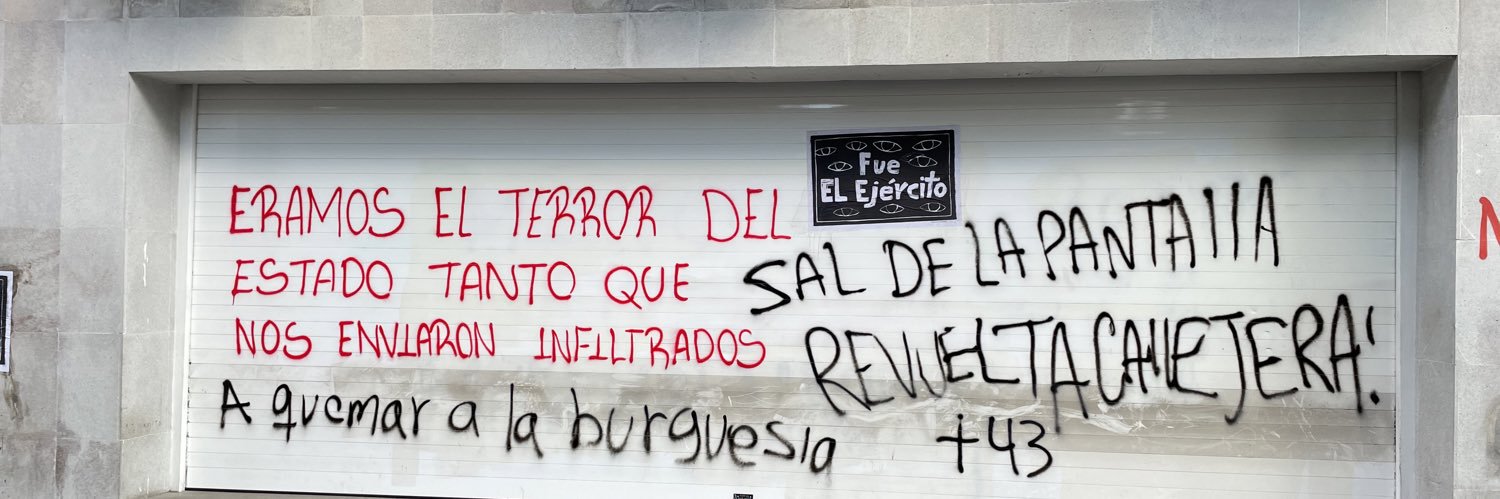 Fue
EL Ejército
ERAMOS EL TERROR DEL
ESTADO TANTO QUE
NOS ENVIARON INFILTRADOS
SAL DE LA PANTAllA
REVUELTA CAllEJERA!
A quemar a la burguesia
+43